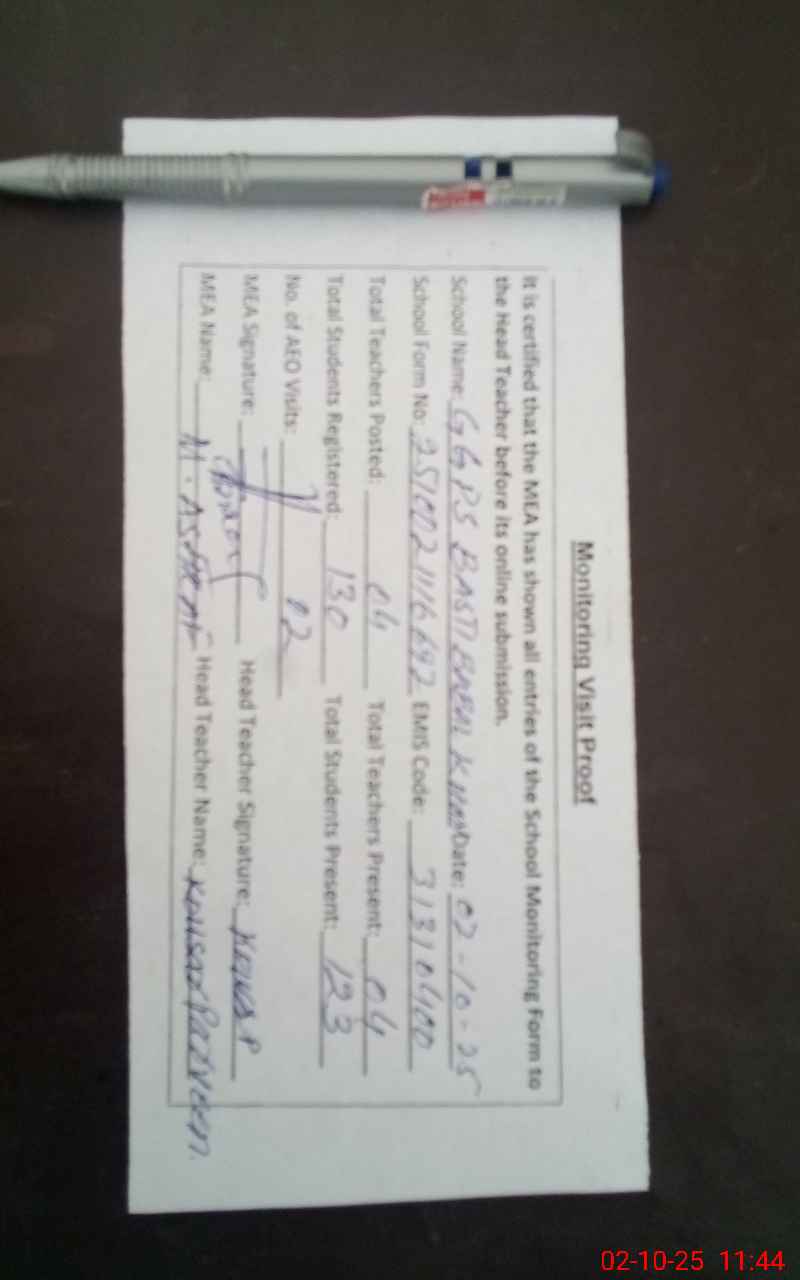 Monitoring Visit Proof
It is certified that the MEA has shown all entries of the School Monitoring Form to
the Head Teacher before its online submission.
School Name: GGPS BASTI Date: 02-10-25
School Form No: EMIS Code: 31310400
Total Teachers Posted: 04 Total Teachers Present: 04
Total Students Registered: 130 Total Students Present: 123
No. of AEO Visits: 02
MEA Signature: Head Teacher Signature:
MEA Name: M. Head Teacher Name: Parveen.
02-10-25 11:44